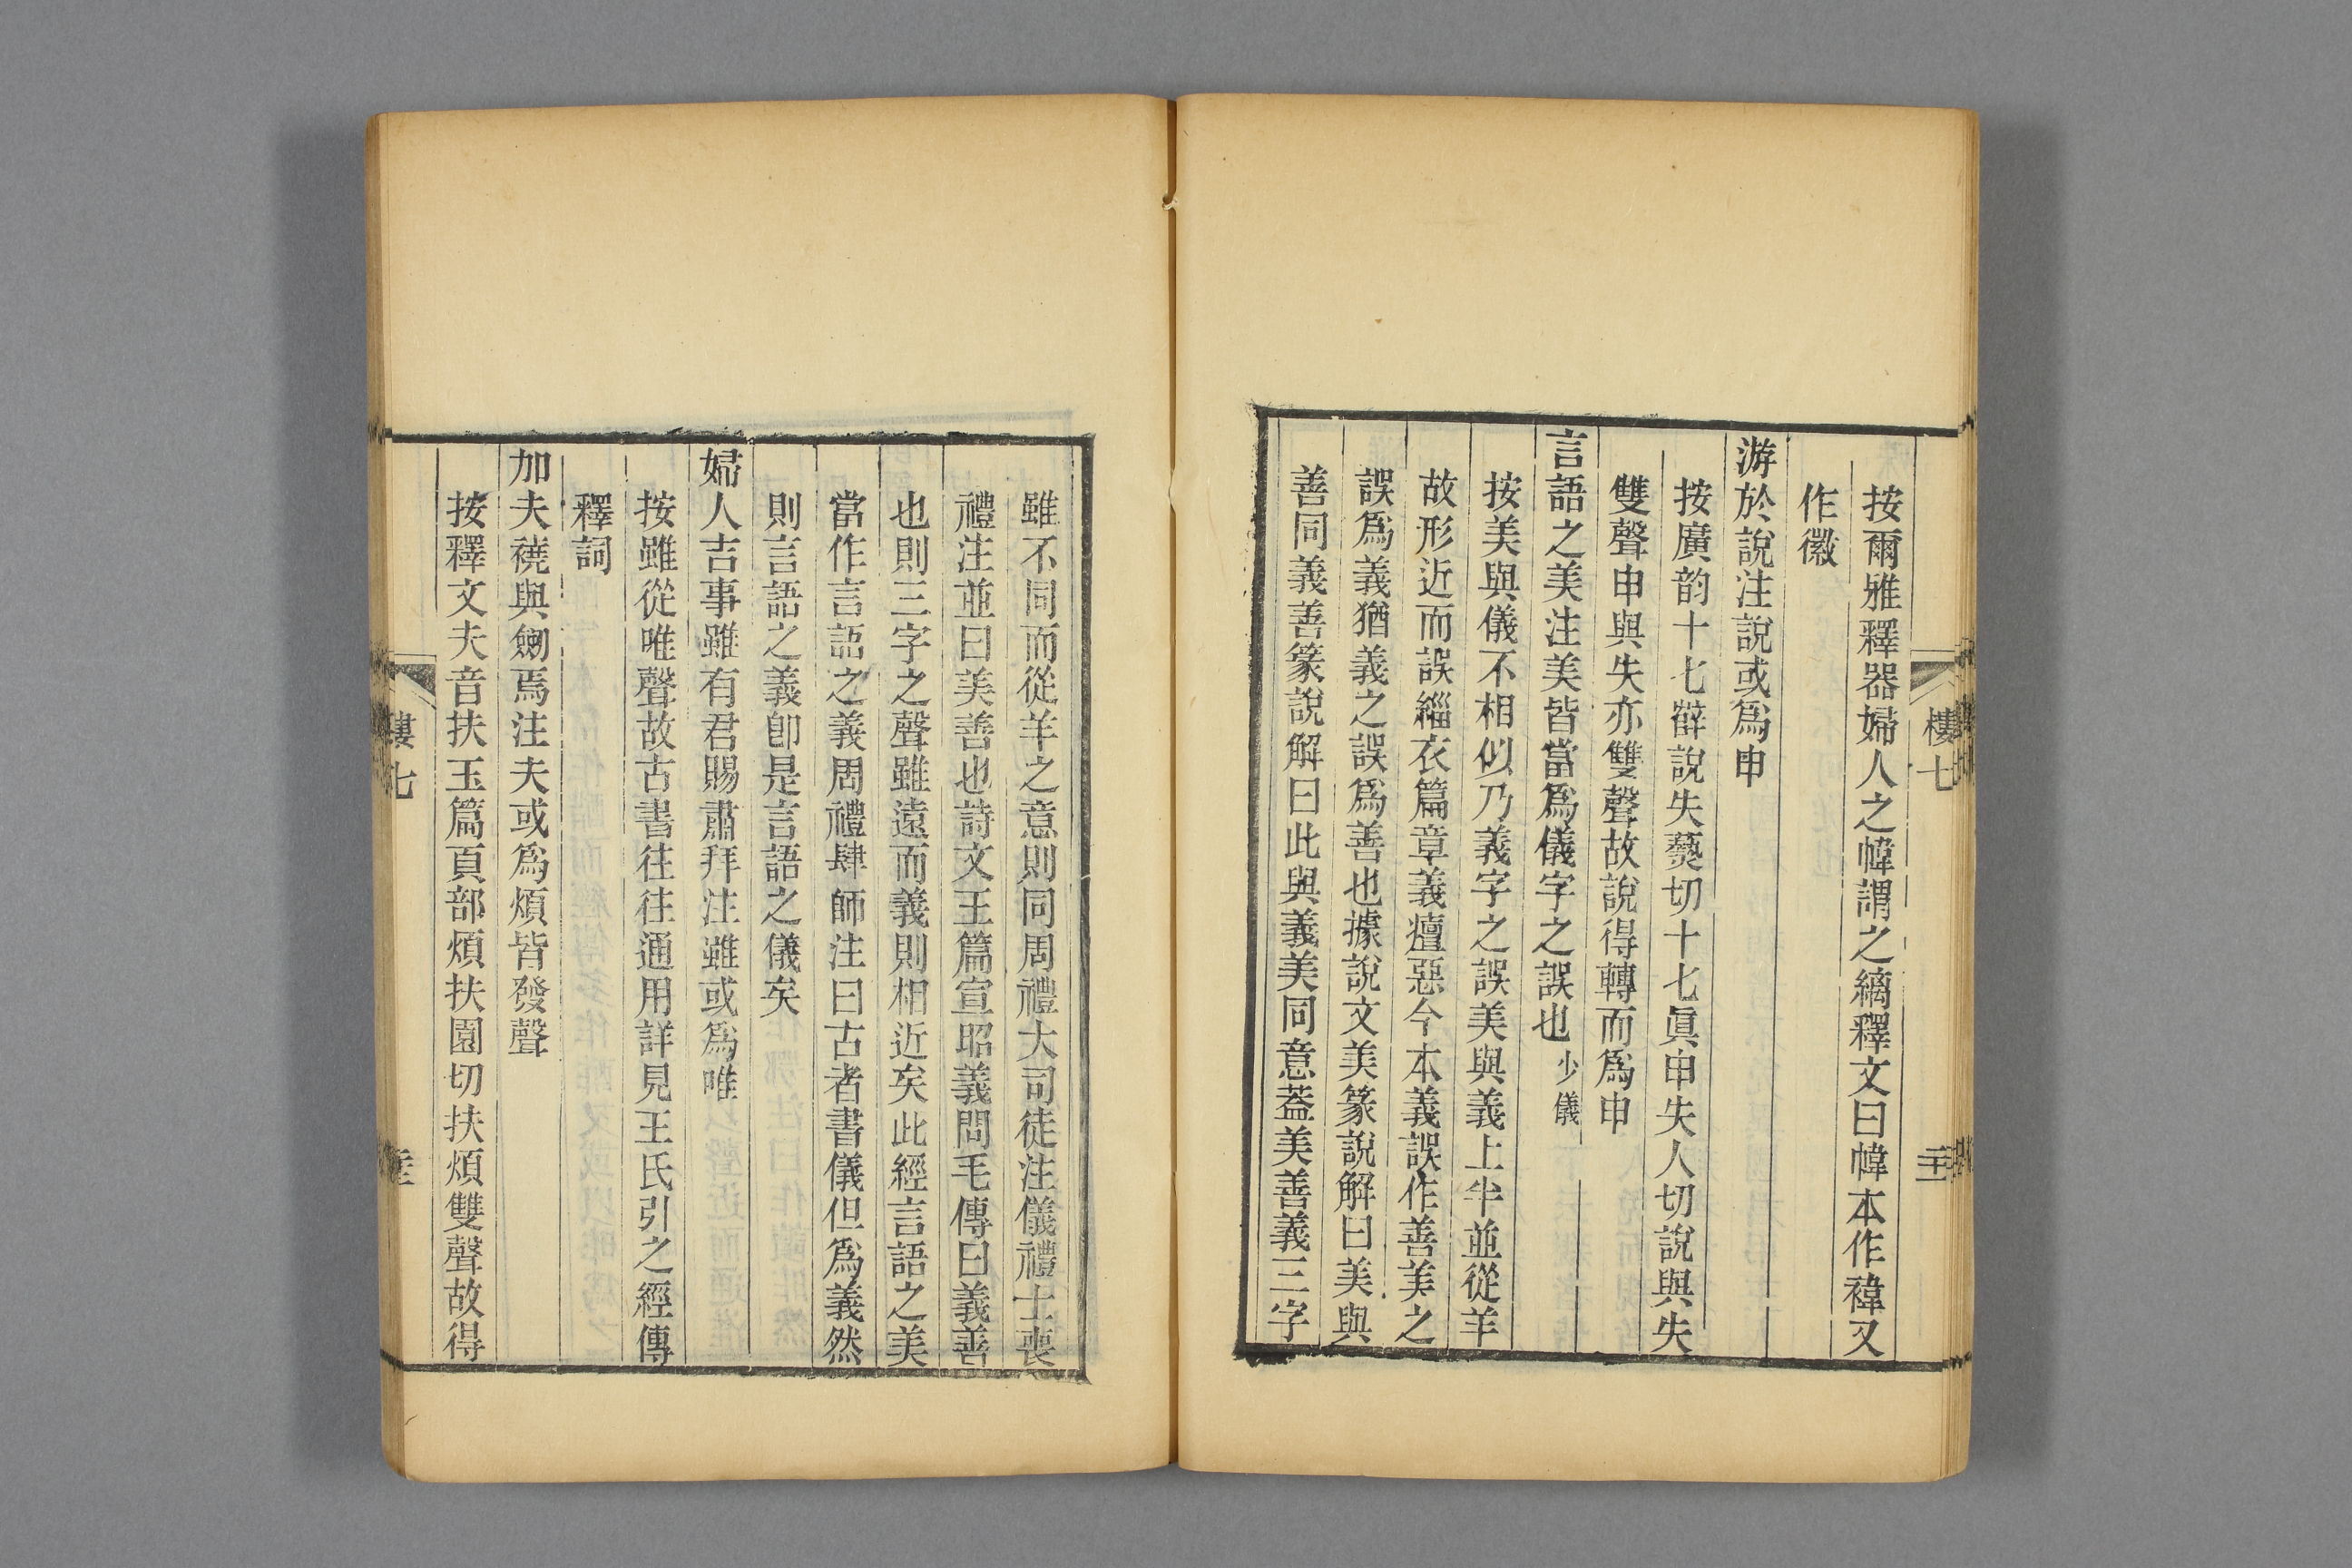 樓七
按爾雅釋器婦人之幃謂之縭釋文曰幃本作褘又
作徽
游於說注說或爲申
按廣韵十七薛說失爇切十七眞申失人切說與失
雙聲申與失亦雙聲故說得轉而爲申
言語之美注美皆當爲儀字之誤也少儀
按美與儀不相似乃義字之誤美與義上半並從羊
故形近而誤緇衣篇章義癉惡今本義誤作善美之
誤爲義猶義之誤爲善也據說文美篆說解曰美與
善同義善篆說解曰此與義美同意葢美善義三字
雖不同而從羊之意則同周禮大司徒注儀禮士喪
禮注並曰美善也詩文王篇宣昭義問毛傳曰義善
也則三字之聲雖遠而義則相近矣此經言語之美
當作言語之義周禮肆師注曰古者書儀但爲義然
則言語之義卽是言語之儀矣
婦人吉事雖有君賜肅拜注雖或爲唯
按雖從唯聲故古書往往通用詳見王氏引之經傳
釋詞
加夫襓與劒焉注夫或爲煩皆發聲
按釋文夫音扶玉篇頁部煩扶園切扶煩雙聲故得
樓七